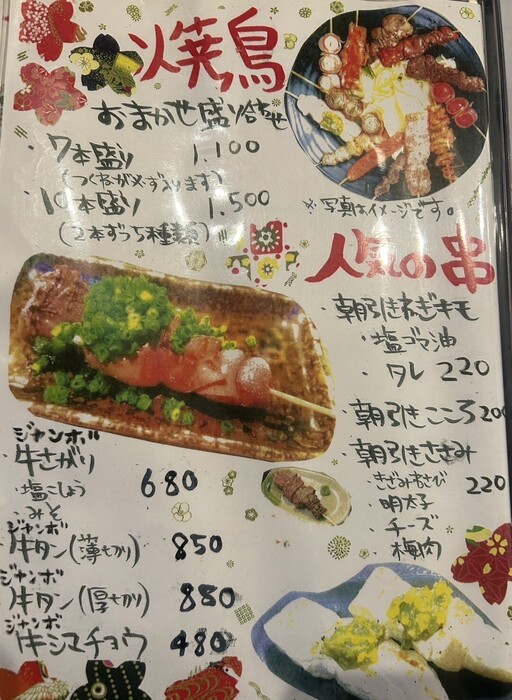 焼鳥
おまかせ盛り合せ
・7本盛り 1.100
(つくねが必ず入ります)
・10本盛り 1.500
(2本ずつ5種類)
※写真はイメージです。
人気の串
・朝引きねぎキモ
・塩ゴマ油
・タレ 220
・朝引きこころ 200
・朝引きささみ
・きざみわさび 220
・明太子
・チーズ
・梅肉
ジャンボ
・牛さがり
・塩こしょう 680
・みそ
ジャンボ
牛タン(薄切り) 850
ジャンボ
牛タン(厚切り) 880
ジャンボ
牛シマチョウ 480